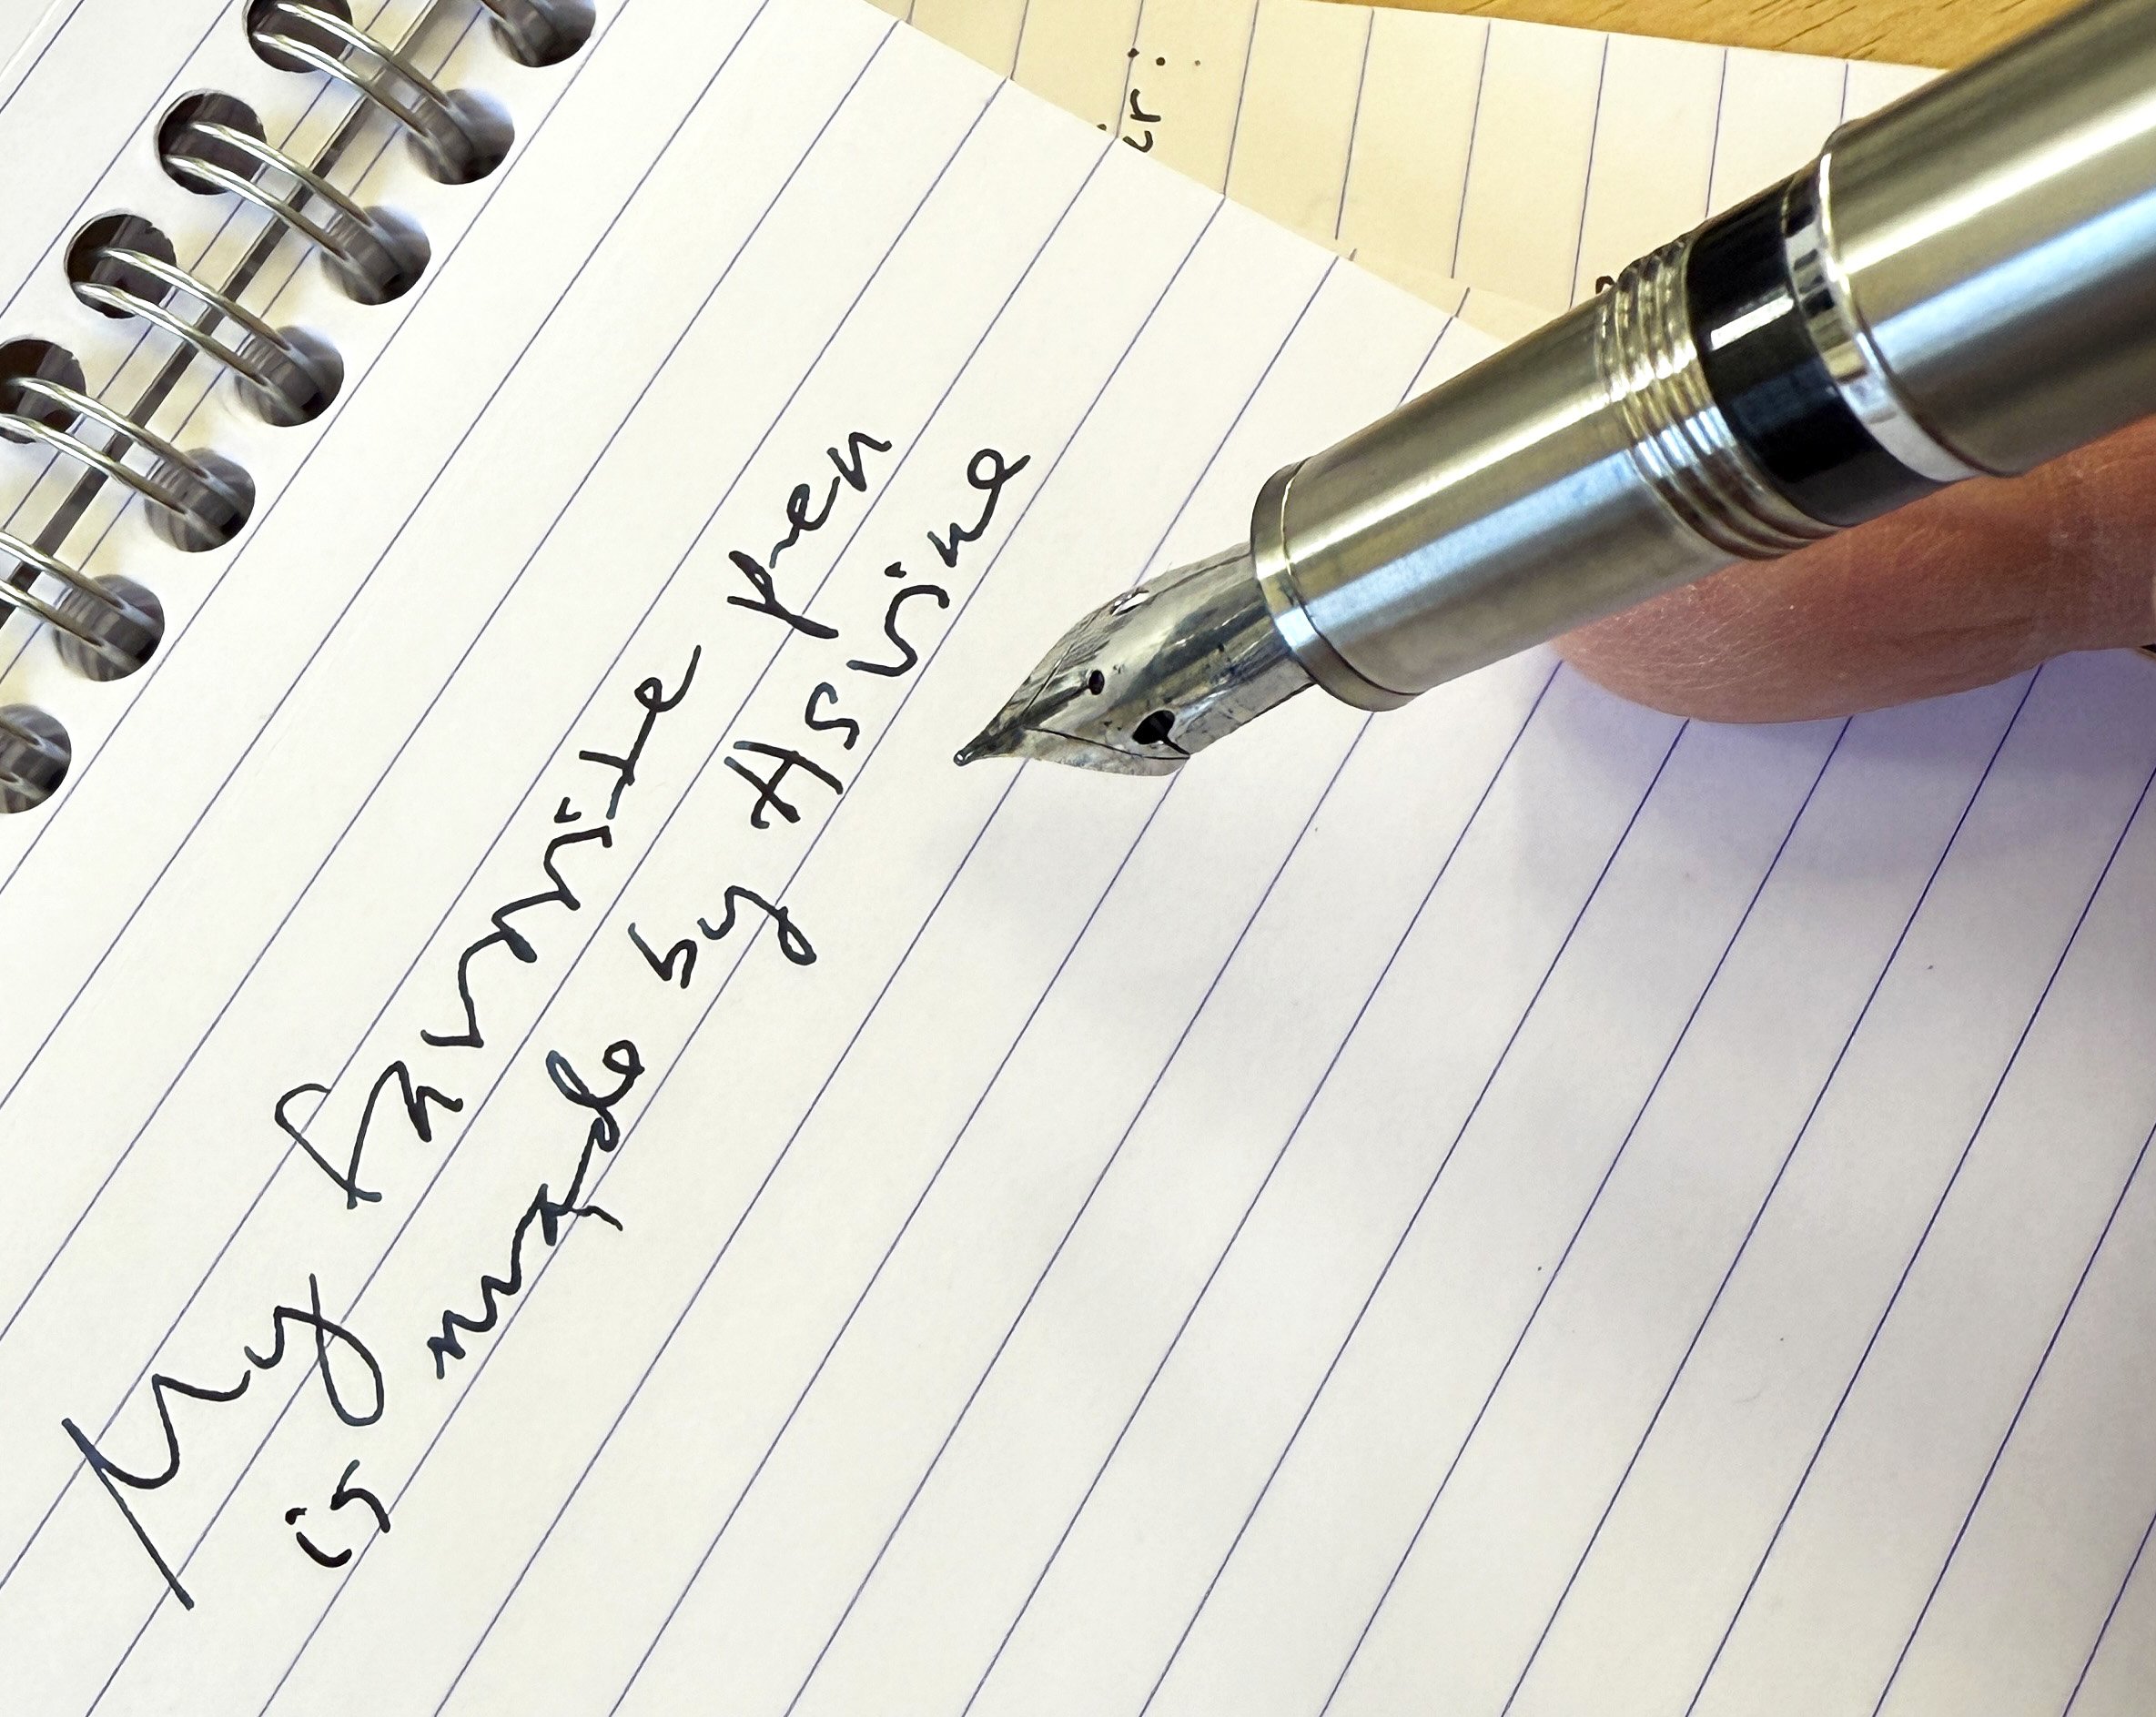 My favorite pen
is made by Asvine